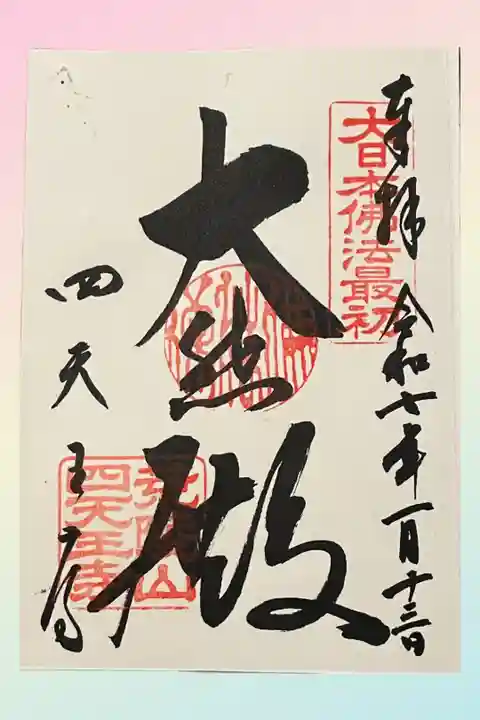 奉拝 令和七年一月十三日
大日本佛法最初
大悲殿
四天王寺
荒陵山
四天王寺